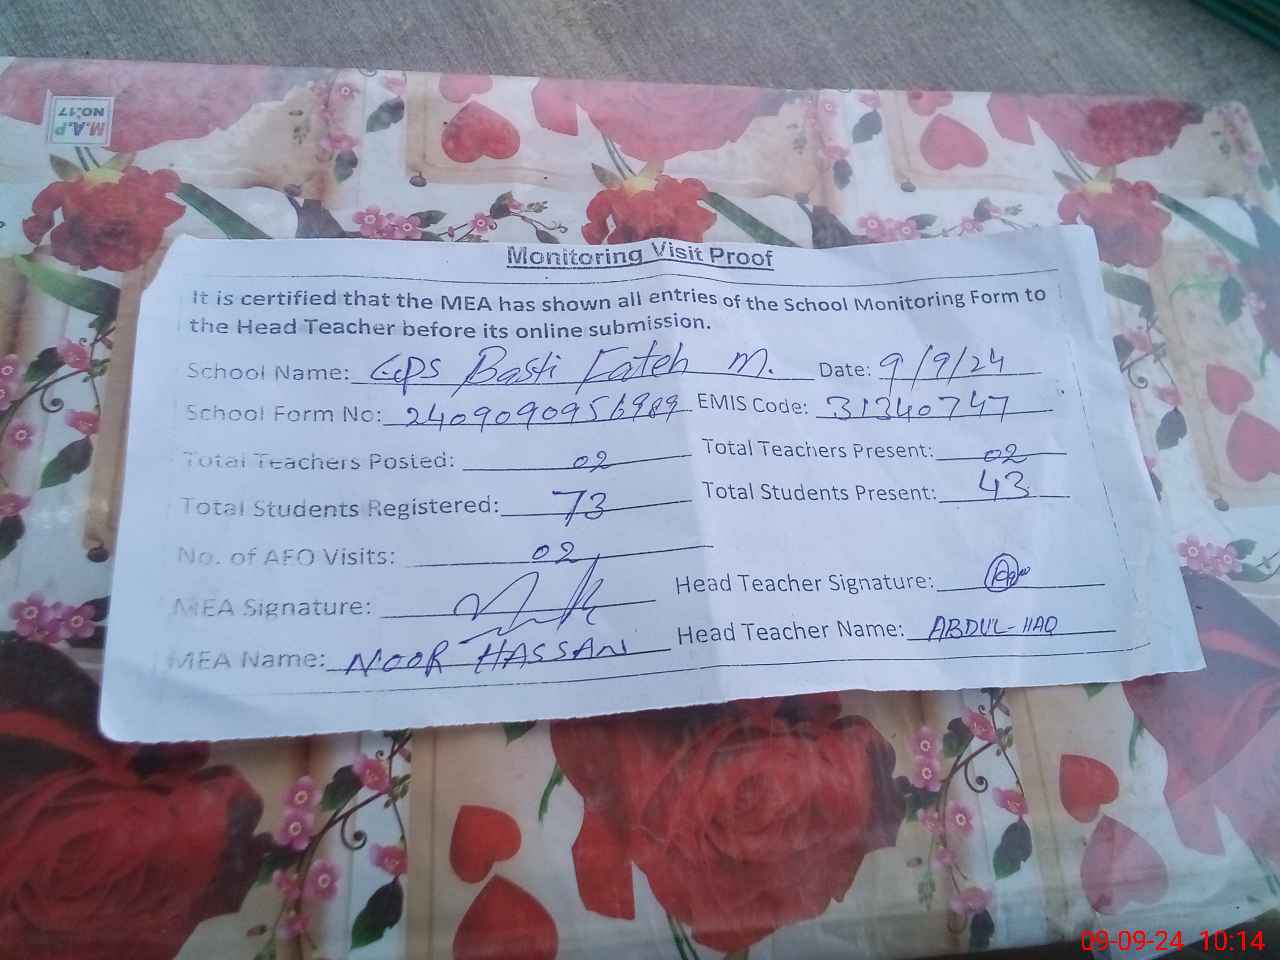 M.A.P
NO.17
Monitoring Visit Proof
It is certified that the MEA has shown all entries of the School Monitoring Form to
the Head Teacher before its online submission.
School Name: GPS Basti Fateh M. Date: 9/9/24
School Form No: 2409090956989 EMIS Code: 31340747
Total Teachers Posted: 02 Total Teachers Present: 02
Total Students Registered: 73 Total Students Present: 43
No. of AEO Visits: 02
MEA Signature: Head Teacher Signature:
MEA Name: NOOR HASSAN Head Teacher Name: ABDUL-HAQ
09-09-24 10:14